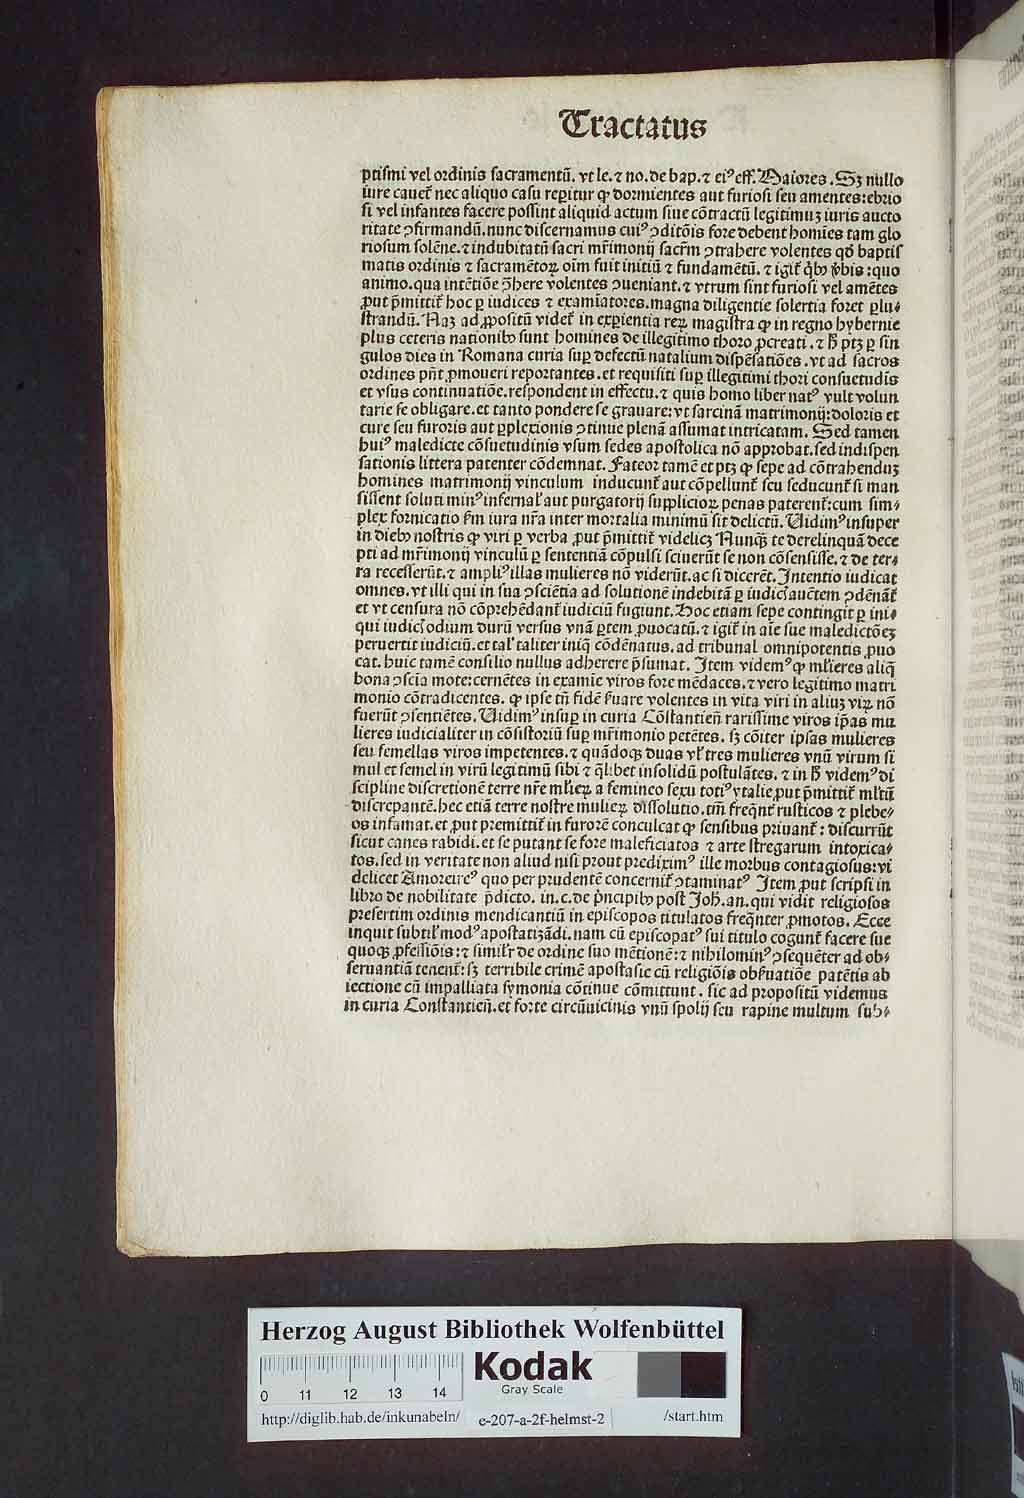 Tractatus
ptismi vel ordinis sacramentū. vt le. ⁊ no. de bap. ⁊ eiꝰ eff. Maiores. Sꝫ nullo
iure cauet̄ nec aliquo casu reꝑitur ꝙ dormientes aut furiosi seu amentes: ebrio
si vel infantes facere possint aliquid actum siue cōtractū legitimuꝫ iuris aucto
ritate ꝯfirmandū. nunc discernamus cuiꝰ ꝯditōis fore debent homīes tam glo
riosum solēne. ⁊ indubitatū sacri mr̄imonij sacr̄m ꝯtrahere volentes qđ baptis
matis ordinis ⁊ sacramētoꝝ oīm fuit initiū ⁊ fundamētū. ⁊ igit̄ qͥbꝰ v̄bis: quo
animo. qua intētiōe ꝯ̄here volentes ꝯueniant. ⁊ vtrum sint furiosi vel amētes
ꝓut p̄mittit̄ hoc ꝑ iudices ⁊ examīatores. magna diligentie solertia foret ꝑlu⸗
strandū. Naꝫ ad ꝓpositū videt̄ in exꝑientia reꝝ magistra ꝙ in regno hybernie
plus ceteris nationibꝰ sunt homines de illegitimo thoro ꝓcreati. ⁊ ħ ptꝫ ꝑ sin
gulos dies in Romana curia suꝑ defectū natalium dispēsatiōes. vt ad sacros
ordines pn̄t ꝓmoueri reportantes. et requisiti suꝑ illegitimi thori consuetudīs
et vsus continuatiōe. respondent in effectu. ⁊ quis homo liber natꝰ vult volun
tarie se obligare. et tanto pondere se grauare: vt sarcinā matrimonij: doloris et
cure seu furoris aut ꝑplexionis ꝯtinue plenā assumat intricatam. Sed tamen
huiꝰ maledicte cōsuetudinis vsum sedes apostolica nō approbat. sed indispen
sationis littera patenter cōdemnat. Fateor tamē et ptꝫ ꝙ sepe ad cōtrahenduꝫ
homines matrimonij vinculum inducunt̄ aut cōpellunt̄ seu seducunt̄ si man
sissent soluti minꝰ infernal̄ aut purgatorij supplicioꝝ penas paterent̄: cum sim⸗
plex fornicatio km̄ iura nr̄a inter mortalia minimū sit delictū. Uidimꝰ insuper
in diebꝰ nostris ꝙ viri ꝑ verba ꝓut p̄mittit̄ videlicꝫ Nunqꝫ te derelinquā dece
pti ad mr̄imonij vinculū ꝑ sententiā cōpulsi sciuerūt se non cōsensisse. ⁊ de ter⸗
ra recesserūt. ⁊ ampliꝰ illas mulieres nō viderūt. ac si dicerēt. Intentio iudicat
omnes. vt illi qui in sua ꝯsciētia ad solutionē indebitā ꝑ iudicꝭ auētem ꝯdēnāt̄
et vt censura nō cōprehēdant̄ iudiciū fugiunt. Hoc etiam sepe contingit ꝑ ini⸗
qui iudicꝭ odium durū versus vnā ꝑtem ꝓuocatū. ⁊ igit̄ in aīe sue maledictōeꝫ
peruertit iudiciū. et tal̄ taliter iniq̄ cōdēnatus. ad tribunal omnipotentis ꝓuo
cat. huic tamē consilio nullus adherere p̄sumat. Item videmꝰ ꝙ ml̄ieres aliq̄
bona ꝯscīa mote: cernētes in examīe viros fore mēdaces. ⁊ vero legitimo matri
monio cōtradicentes. ꝙ ipse tn̄ fidē ẜuare volentes in vita viri in aliuꝫ viꝝ nō
fuerūt ꝯsentiētes. Uidimꝰ insuꝑ in curia Cōstantien̄ rarissime viros ip̄as mu
lieres iudicialiter in cōsistoriū suꝑ mr̄imonio petētes. sꝫ cōiter ipsas mulieres
seu femellas viros impetentes. ⁊ quādoqꝫ duas vl̄ tres mulieres vnū virum si
mul et semel in virū legitimū sibi ⁊ q̄libet insolidū postulātes. ⁊ in ħ videmꝰ di
scipline discretionē terre nr̄e ml̄ieꝝ a femineo sexu totiꝰ ytalie ꝓut p̄mittit̄ ml̄tū
discrepantē. hec etiā terre nostre mulieꝝ dissolutio. tm̄ freqn̄t̄ rusticos ⁊ plebe⸗
os infamat. et ꝓut premittit̄ in furorē conculcat ꝙ sensibus priuant̄: discurrūt
sicut canes rabidi. et se putant se fore maleficiatos ⁊ arte stregarum intoxica⸗
tos. sed in veritate non aliud nisi prout prediximꝰ ille morbus contagiosus: vi
delicet Amorereꝰ quo per prudentē concernit̄ ꝯtaminatꝰ Item ꝓut scripsi in
libro de nobilitate p̄dicto. in. c. de pͥncipibꝰ post Joh̄. an. qui vidit religiosos
presertim ordinis mendicantiū in episcopos titulatos freqn̄ter ꝓmotos. Ecce
inquit subtil̄ modꝰ apostatizādi. nam cū episcopatꝰ sui titulo cogunt̄ facere sue
quoqꝫ ꝓfessiōis: ⁊ simil̄r de ordine suo mētionē: ⁊ nihilominꝰ ꝯsequēter ad ob⸗
seruantiā tenent̄: sꝫ terribile crimē apostasie cū religiōis obẜuatiōe patētia ab
iectione cū impalliata symonia cōtinue cōmittunt. sic ad propositū videmus
in curia Constantien̄. et forte circūuicinis vnū spolij seu rapine multum sub⸗
Herzog August Bibliothek Wolfenbüttel
0 11 12 13 14
Kodak
Gray Scale
http://diglib.hab.de/inkunabeln/ e-207-a-2f-helmst-2 /start.htm